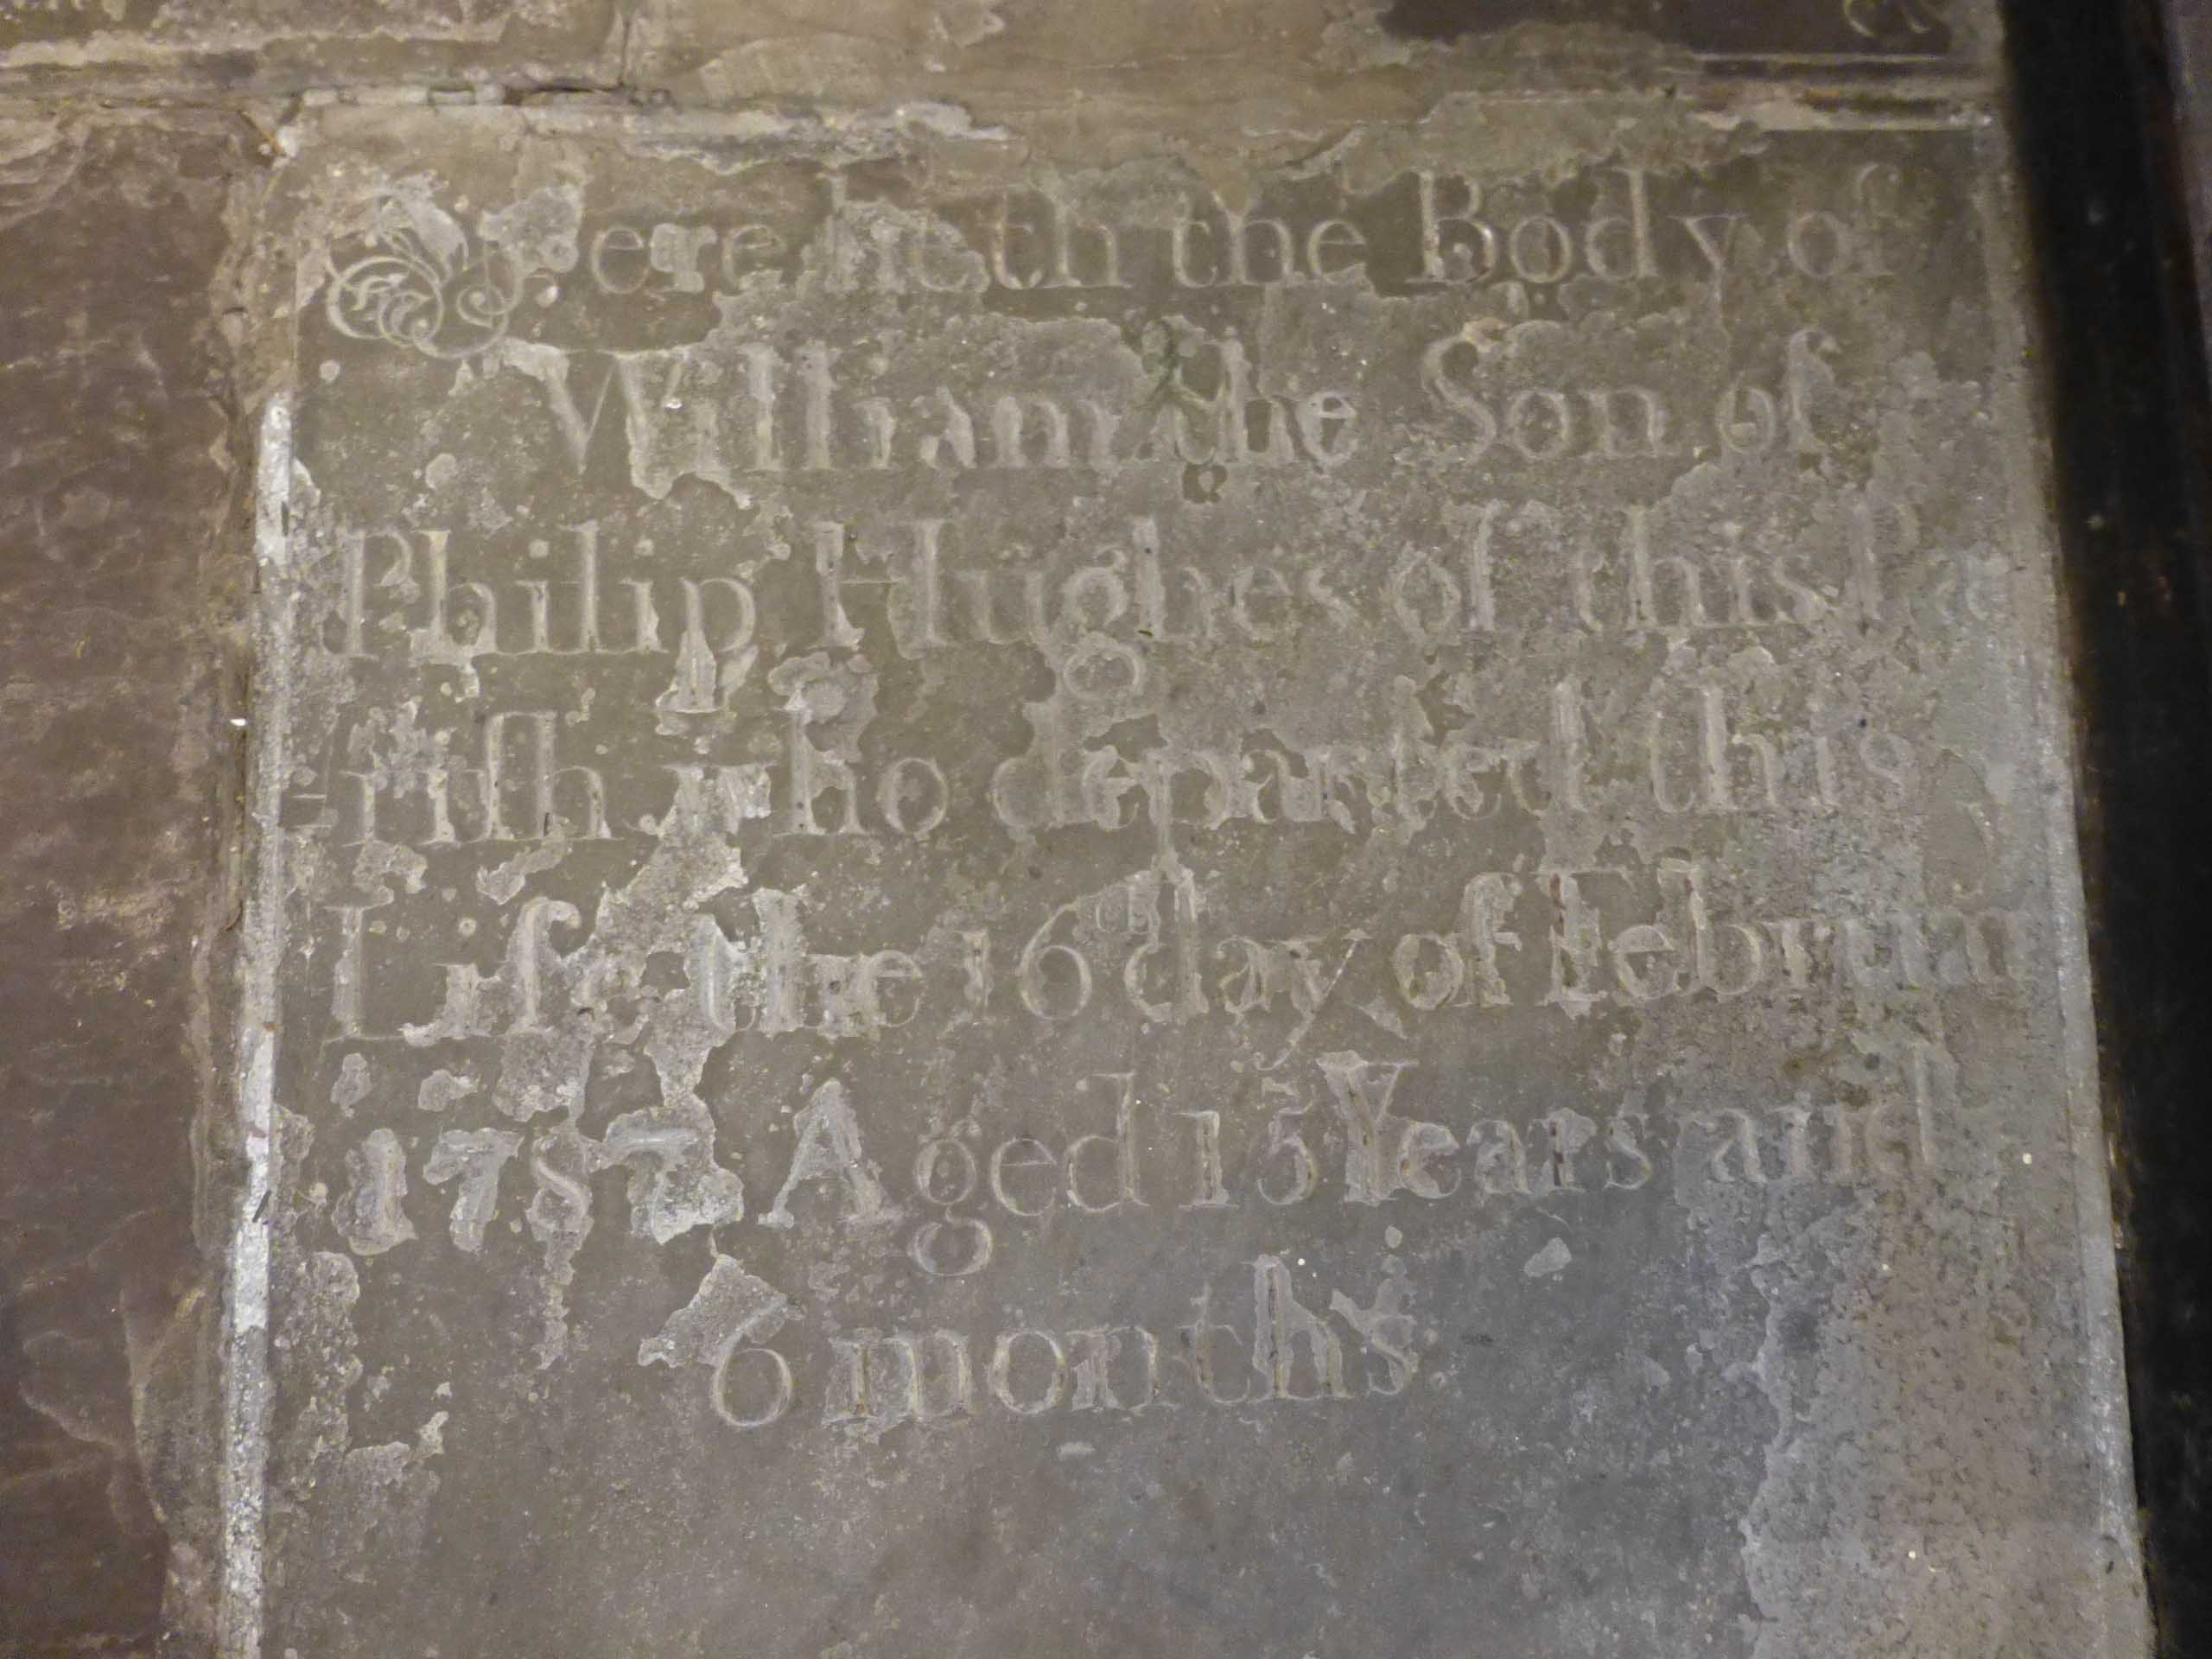 Here lieth the Body of
William the Son of
Philip Hughes of this Pa
-rish who departed this
Life the 16th day of Februar
Aged 15 Years and
6 months